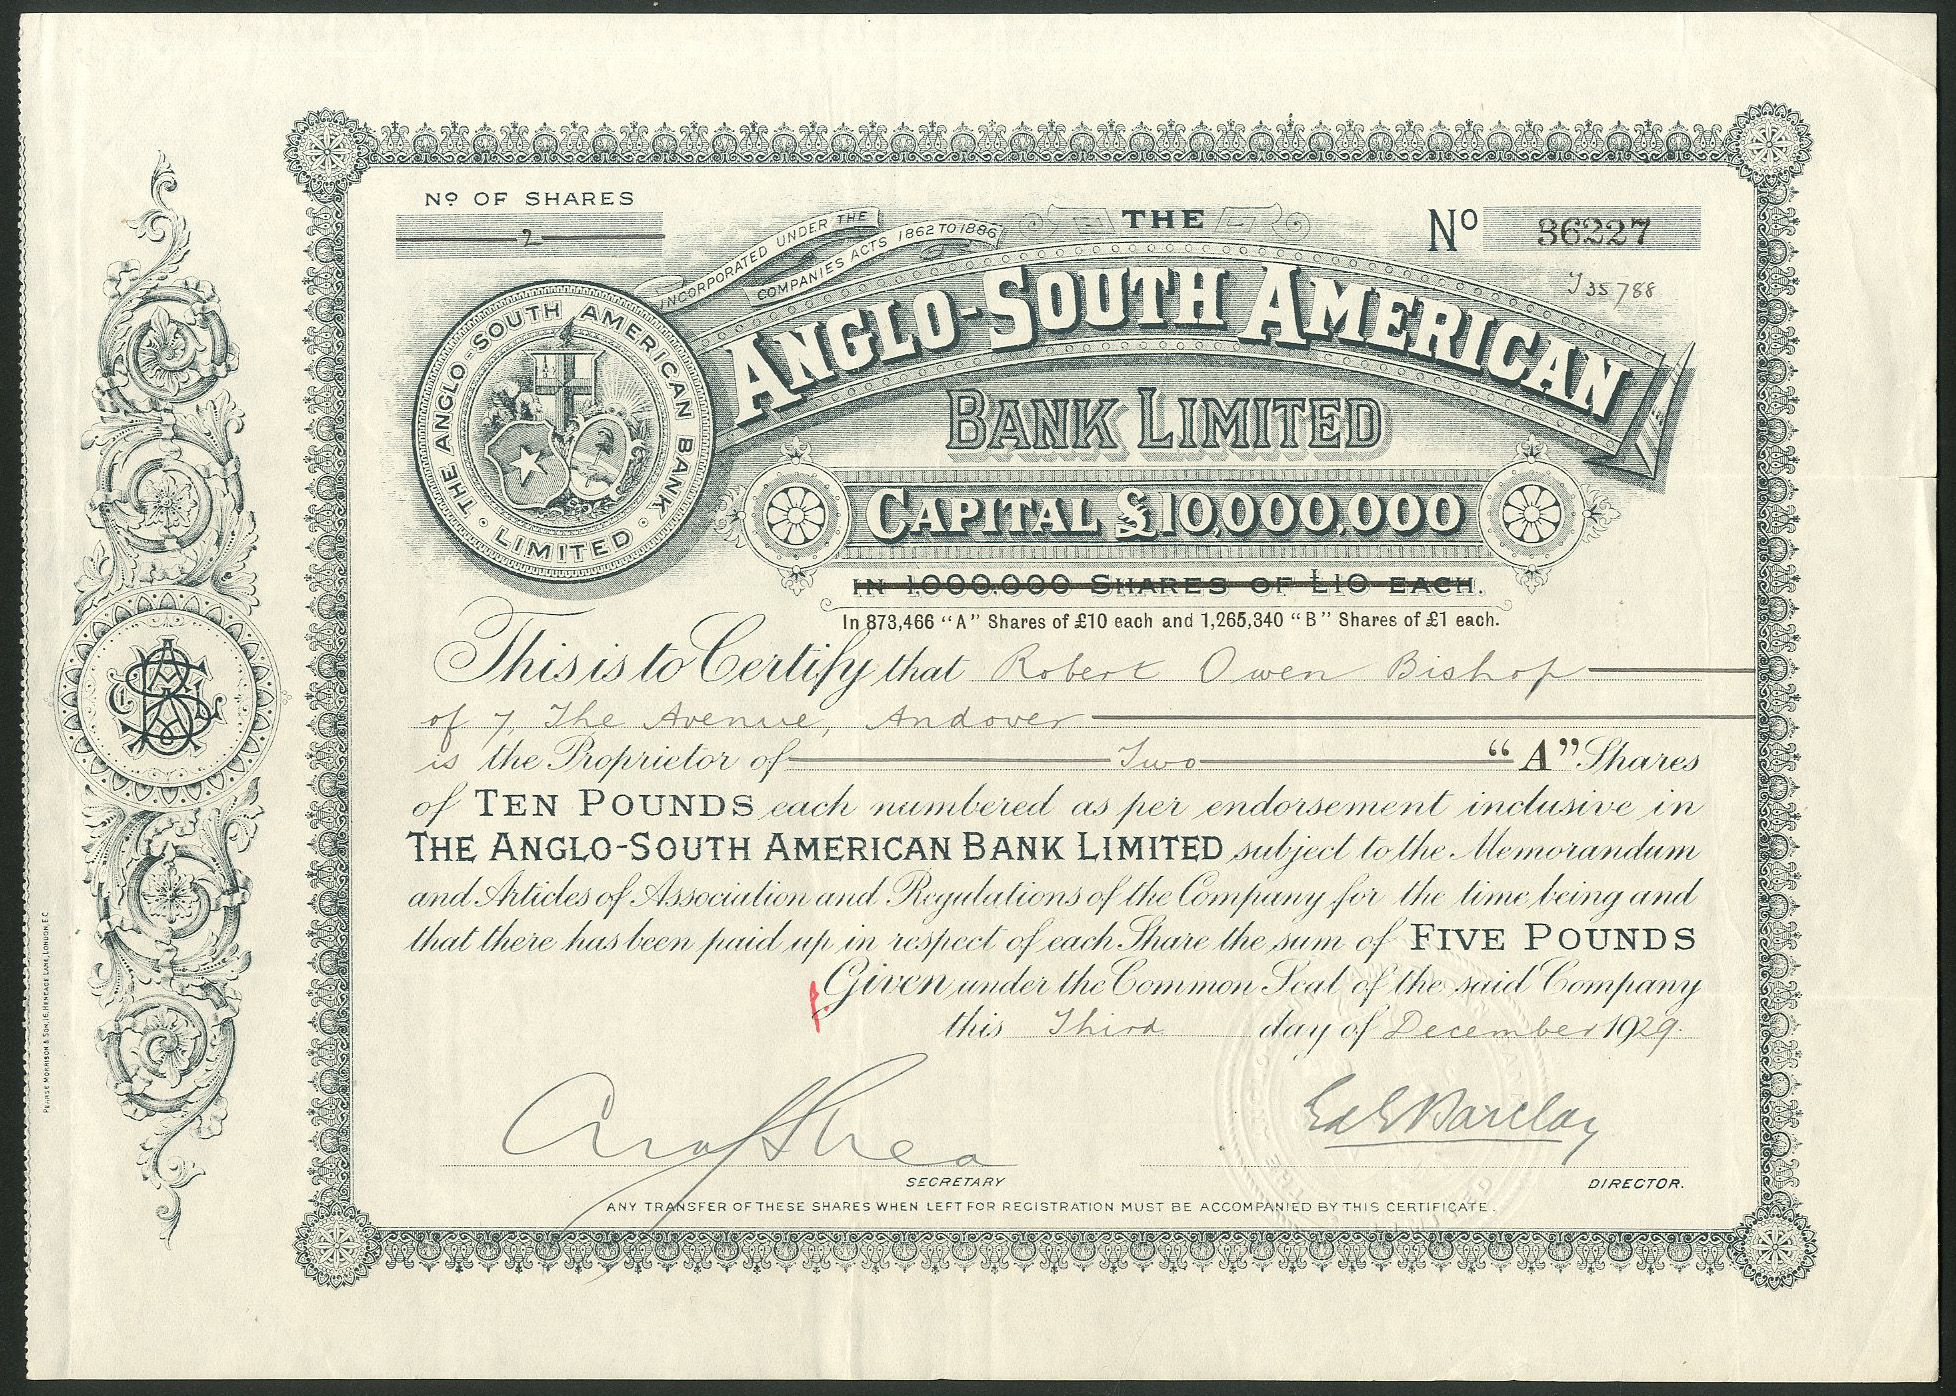 Nº OF SHARES
2
INCORPORATED UNDER THE
COMPANIES ACTS 1862 TO 1886
THE
Nº 36227
J 35788
ANGLO-SOUTH AMERICAN
BANK LIMITED
THE ANGLO-SOUTH AMERICAN BANK · LIMITED ·
CAPITAL £10,000,000
IN 1,000,000 SHARES OF £10 EACH.
In 873,466 “A” Shares of £10 each and 1,265,340 “B” Shares of £1 each.
This is to Certify that Robert Owen Bishop
of 7, The Avenue, Andover
is the Proprietor of Two “A” Shares
of TEN POUNDS each numbered as per endorsement inclusive in
THE ANGLO-SOUTH AMERICAN BANK LIMITED subject to the Memorandum
and Articles of Association and Regulations of the Company for the time being and
that there has been paid up in respect of each Share the sum of FIVE POUNDS
Given under the Common Seal of the said Company
this Third day of December 1929.
Barclay
SECRETARY
DIRECTOR.
ANY TRANSFER OF THESE SHARES WHEN LEFT FOR REGISTRATION MUST BE ACCOMPANIED BY THIS CERTIFICATE.
PEARSE MORRISON & SON, 16, HENEAGE LANE, LONDON, E.C.